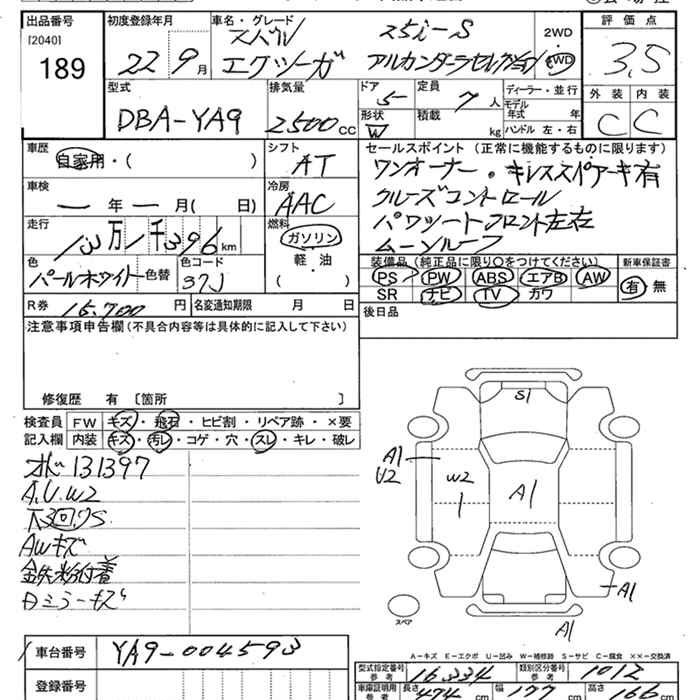 出品番号 初度登録年月 車名・グレード 評価点
[2040] スバル 25i-S 2WD
189 22 9月 エクシーガ アルカンターラセレクション 4WD 3.5
型式 排気量 ドア 定員 ディーラー・並行 外装 内装
DBA-YA9 2500cc 5 7人 モデル年式 年
形状 W 積載 kg ハンドル 左・右 C C
車歴 シフト セールスポイント（正常に機能するものに限ります）
自家用・（ ） AT ワンオーナー・キーレススペアキー有
車検 冷房 クルーズコントロール
ー年ー月（ 日） AAC パワーシートフロント左右
走行 燃料 ムーンルーフ
13万1千396km ガソリン
軽・油
（ ）
装備品（純正品に限り○をつけてください） 新車保証書
色 色替 色コード PS PW ABS エアB AW 有 無
パールホワイト 37J SR ナビ TV カワ
R券 15,700円 名変通知期限 月 日 後日品
注意事項申告欄（不具合内容等は具体的に記入して下さい）
修復歴 有 〔箇所 〕
検査員 FW キズ・飛石・ヒビ割・リペア跡・×要
記入欄 内装 キズ・汚レ・コゲ・穴・スレ・キレ・破レ
オド131397
A.U.W2
下回りS
AWキズ
鉄粉付着
Dミラーキズ
S1
A1
U2
W2
A1
A1
スペア
A1
A-キズ E-エクボ U-凹み W-補修跡 S-サビ C-腐食 ××-交換済
車台番号 YA9-004593
型式指定番号 参考 16334 類別区分番号 参考 1012
登録番号
車庫証明用 参考 長さ 474cm 幅 177cm 高さ 166cm